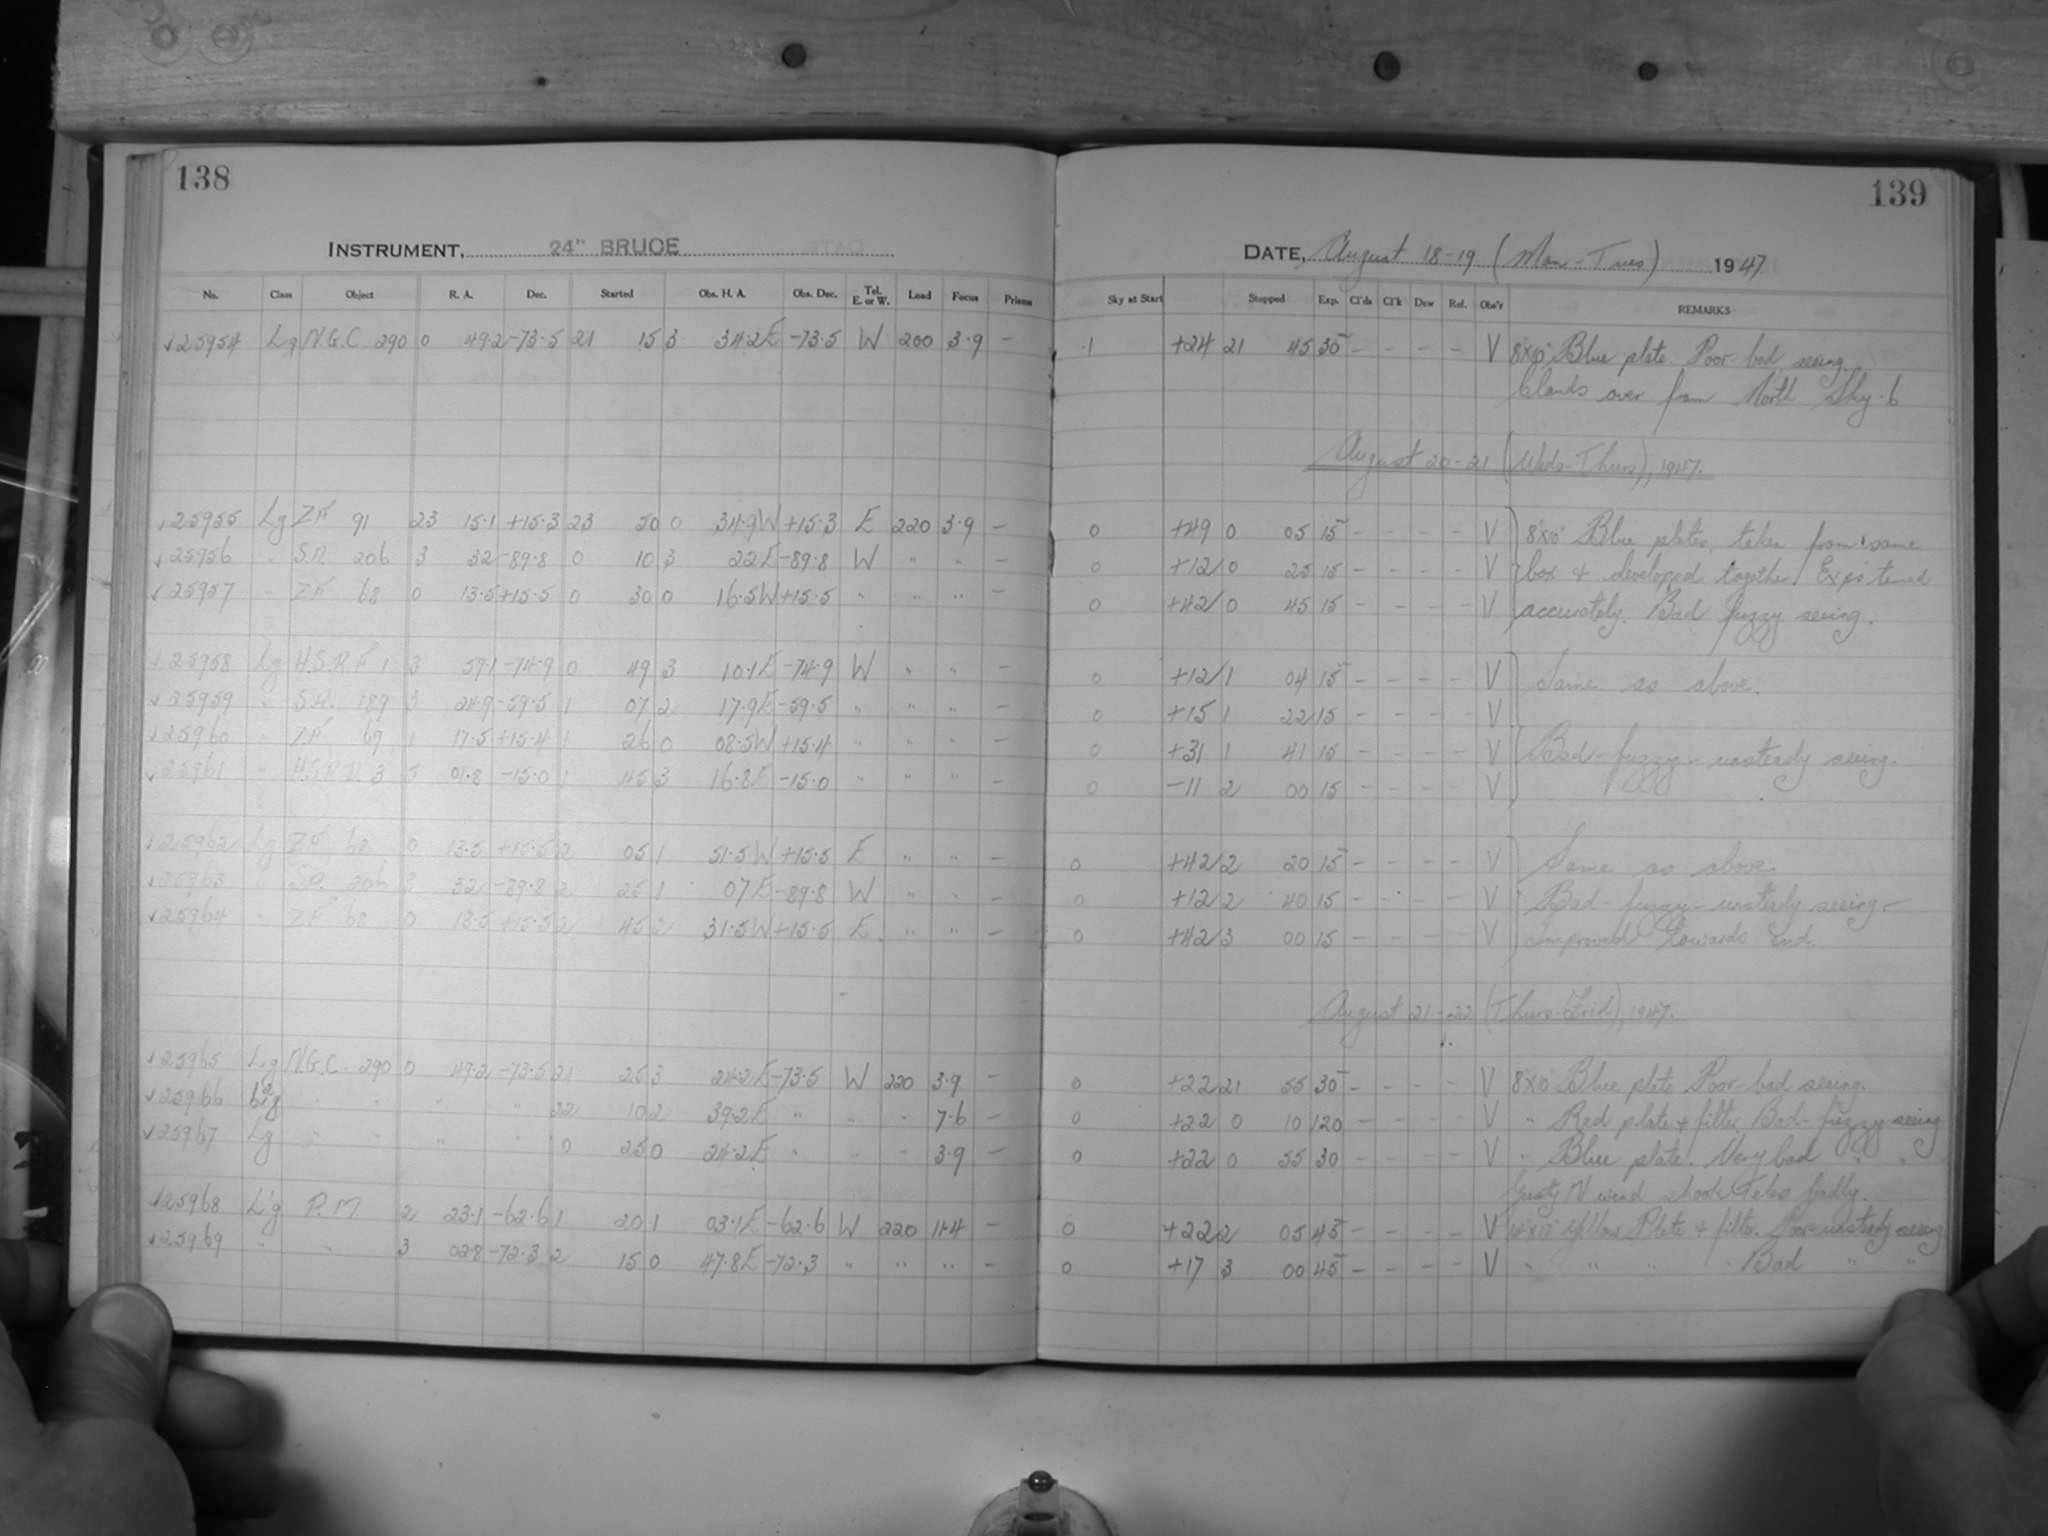 138
INSTRUMENT, 24" BRUCE
No. Class Object R. A. Dec. Started Obs. H. A. Obs. Dec. Tel. E. or W. Load Focus Prisms
25954 Lg N.G.C 290 0 49.2 -73.5 21 15 3 34.2E -73.5 W 200 3.9 -
25955 Lg ZF 91 23 15.1 +15.3 23 50 0 34.9W +15.3 E 220 3.9 -
25956 " S.A. 206 3 32 -89.8 0 10 3 22E -89.8 W " " -
25957 " ZF 68 0 13.5 +15.5 0 30 0 16.5W +15.5 " " " -
25958 Lg H.S.R.F 1 3 59.1 -74.9 0 49 3 10.1E -74.9 W " " -
25959 " S.A. 189 3 24.9 -59.5 1 07 2 17.9E -59.5 " " " -
25960 " ZF 69 1 17.5 +15.4 1 26 0 08.5W +15.4 " " " -
25961 " 3 5 01.8 -15.0 1 45 3 16.8E -15.0 " " " -
25962 Lg ZF 68 0 13.5 +15.5 2 05 1 51.5W +15.5 E " " -
25963 " S.A. 206 3 32 -89.8 2 25 1 07E -89.8 W " " -
25964 " ZF 68 0 13.5 +15.5 2 45 2 31.5W +15.5 E " " -
25965 Lg N.G.C. 290 0 49.2 -73.5 21 25 3 24.2E -73.5 W 220 3.9 -
25966 " " " " 22 10 2 39.2E " " " 7.6 -
25967 Lg " " " " 0 25 0 24.2E " " " 3.9 -
25968 L'g P.M 2 23.1 -62.6 1 20 1 03.1E -62.6 W 220 11.4 -
25969 " " 3 02.8 -72.3 2 15 0 47.8E -72.3 " " " -
139
DATE, August 18-19 (Mon-Tues) 1947
Sky at Start Stopped Exp. Cl'ds Cl'k Dew Ref. Obs'r REMARKS
.1 +24 21 45 30 - - - - V 8"x10" Blue plate. Poor-bad seeing.
Clouds over from North Sky .6
August 20-21 (Weds-Thurs), 1947.
0 +49 0 05 15 - - - - V 8"x10" Blue plates, taken from same
0 +12 0 25 15 - - - - V box & developed together. Exps timed
0 +42 0 45 15 - - - - V accurately. Bad fuzzy seeing.
0 +12 1 04 15 - - - - V Same as above.
0 +15 1 22 15 - - - - V
0 +31 1 41 15 - - - - V Bad-fuzzy-unsteady seeing.
0 -11 2 00 15 - - - - V
0 +42 2 20 15 - - - - V Same as above
0 +12 2 40 15 - - - - V Bad-fuzzy-unsteady seeing-
0 +42 3 00 15 - - - - V improved towards end.
August 21-22 (Thurs-Frid), 1947.
0 +22 21 55 30 - - - - V 8"x10" Blue plate. Poor-bad seeing.
0 +22 0 10 120 - - - - V " Red plate & filter. Bad-fuzzy seeing
0 +22 0 55 30 - - - - V " Blue plate. Very bad " "
Gusty N wind shook Teles badly.
0 +22 2 05 45 - - - - V 14"x17" Yellow Plate & filter. Poor-unsteady seeing
0 +17 3 00 45 - - - - V " " " " Bad " "